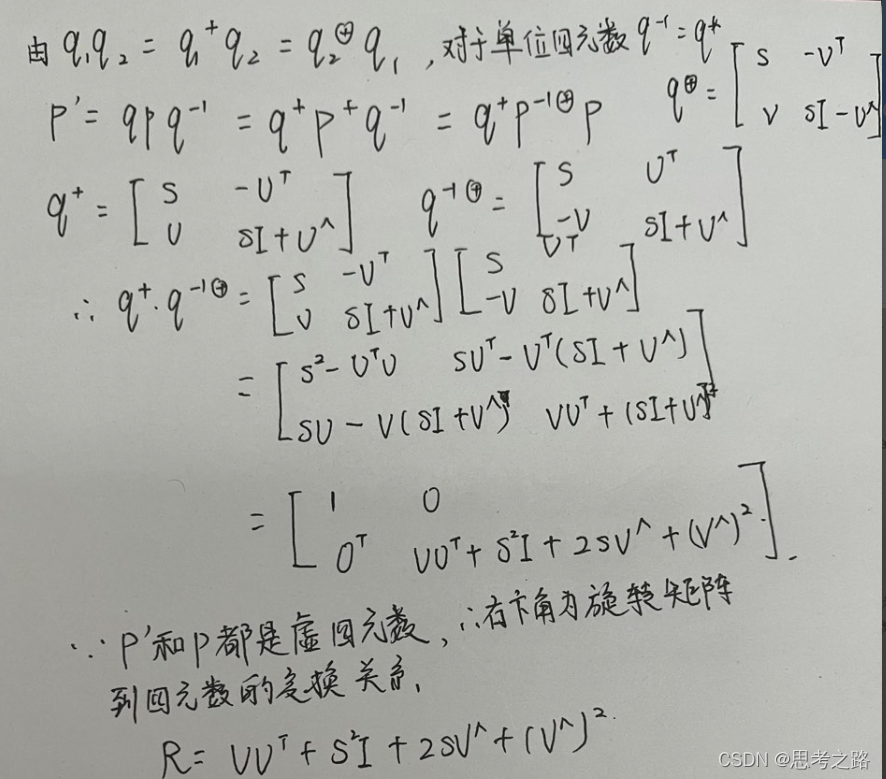 由 q₁q₂ = q₁⁺q₂ = q₂^⊕ q₁ , 对于单位四元数 q⁻¹ = q*
P' = qpq⁻¹ = q⁺p⁺q⁻¹ = q⁺p^{-1⊕}p q^⊕ = [ S -Vᵀ ; V SI-V^ ]
q⁺ = [ S -Uᵀ ; U SI+U^ ] q^{-1⊕} = [ S Uᵀ ; -V SI+V^ ]
∴ q⁺·q^{-1⊕} = [ S -Uᵀ ; V SI+U^ ] [ S Uᵀ ; -V SI+V^ ]
= [ S²-UᵀU SUᵀ-Uᵀ(SI+U^) ; SU-V(SI+V^) VUᵀ+(SI+U^)² ]
= [ 1 0 ; 0ᵀ VUᵀ+S²I+2SV^+(V^)² ].
∵ P'和P都是虚四元数, ∴右下角为旋转矩阵
到四元数的变换关系.
R = VUᵀ+S²I+2SV^+(V^)².
CSDN @思考之路